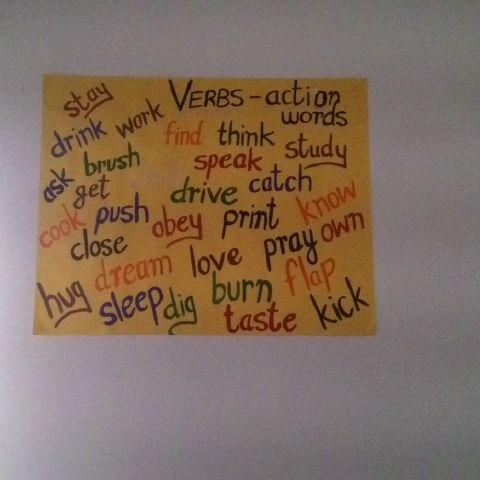 stay VERBS - action
words
drink work find think study
ask brush speak
get drive catch
cook push obey print know
close pray own
dream love
hug sleep dig burn flap
taste kick